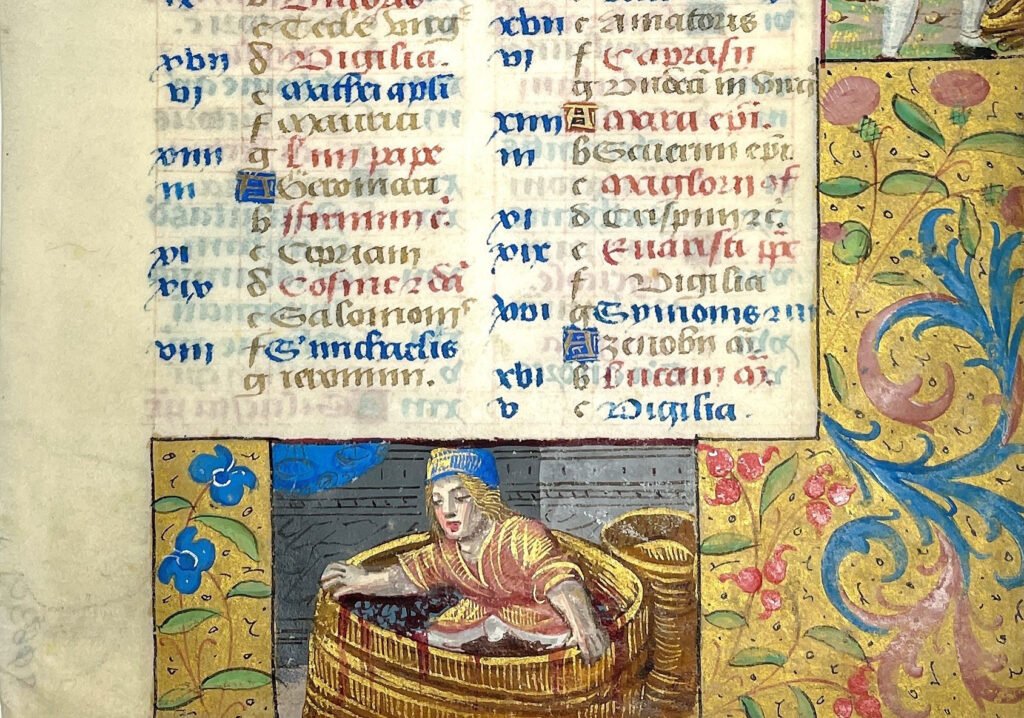 c Tecle virg
xvii d Vigilia.
vi e Mathei apli
f Mauricii
xiiii g Lini pape
iii A Geremari
b Firmini c.
xi c Cipriani
xix d Cosme z da
e Salomonis
viii f S. michaelis
g ieronimi.
xvii e Amatoris
vi f Caprasii
g Undeci m virg
xiiii A epi.
iii b Severini epi.
c Maglorii
xi d Crispini z c.
xix e Evaristi pp
f Vigilia
xvii g Symonis z iu
A zenobii m
xvi b Lucani m.
v c Vigilia.